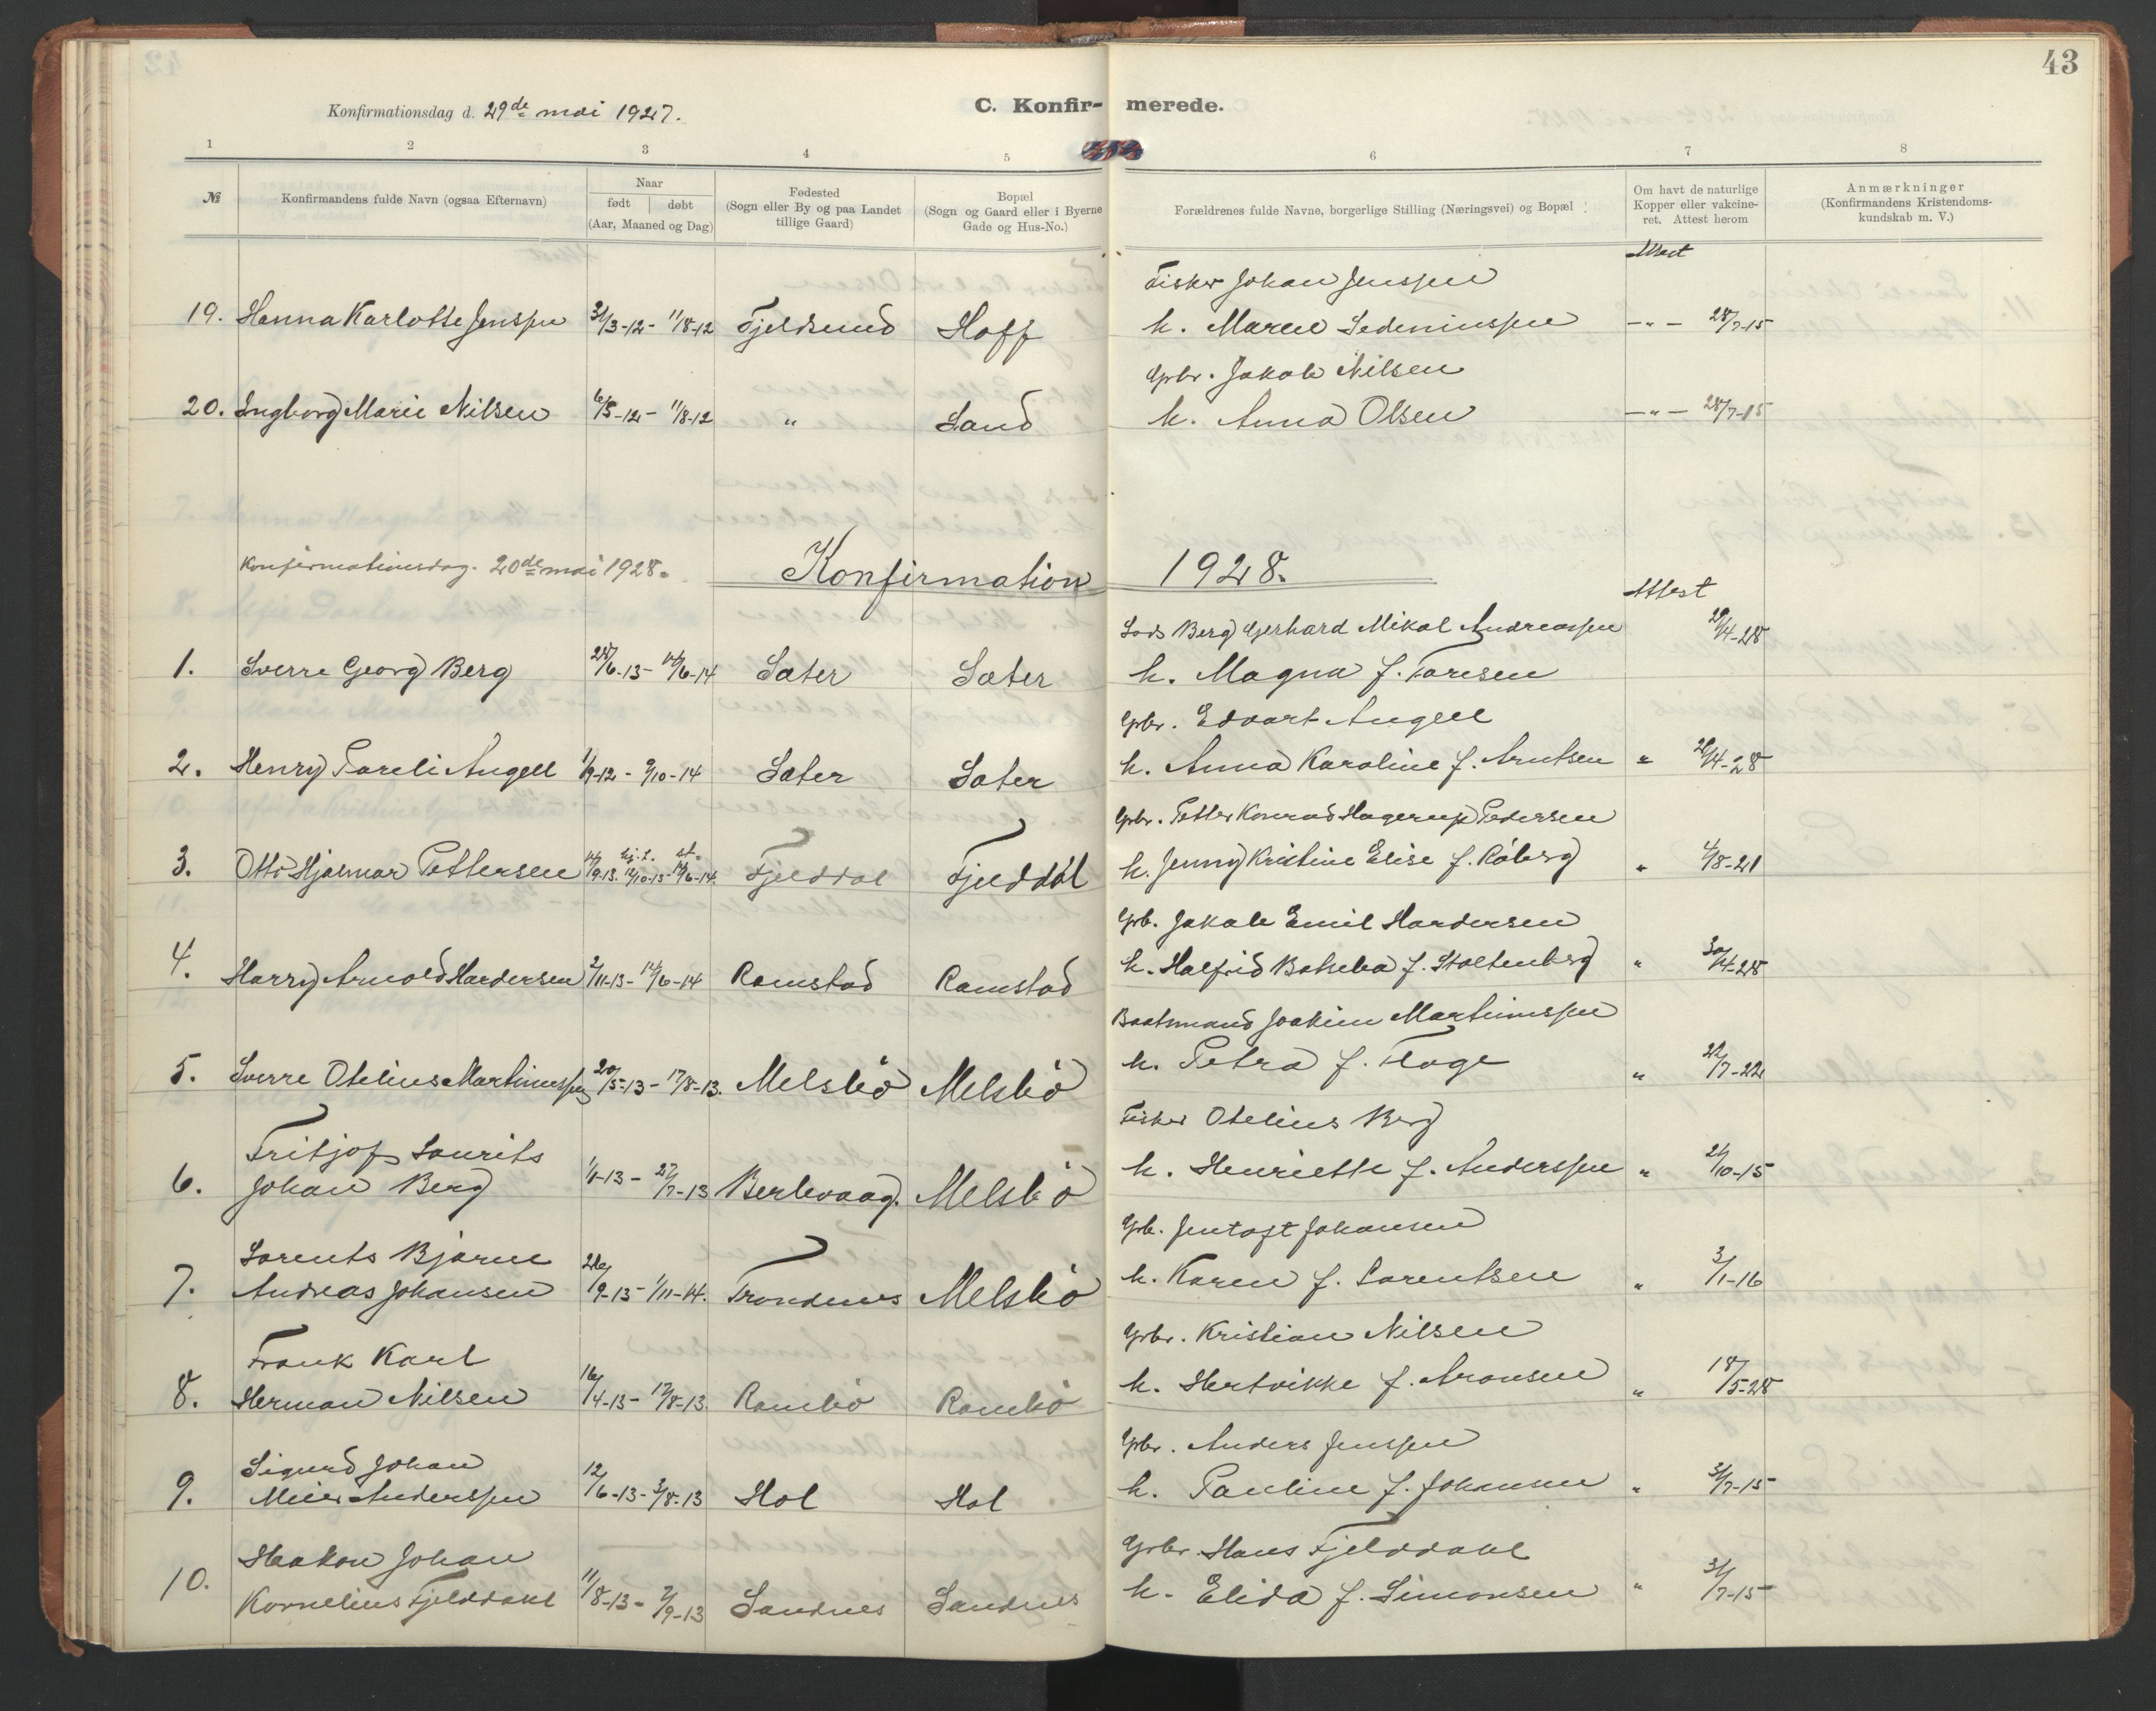 43
Konfirmationsdag d. 29de mai 1927.
C. Konfirmerede.
1 2 3 4 5 6 7 8
№
Konfirmandens fulde Navn (ogsaa Efternavn)
Naar
født | døbt
(Aar, Maaned og Dag)
Fødested
(Sogn eller By og paa Landet
tillige Gaard)
Bopæl
(Sogn og Gaard eller i Byerne
Gade og Hus-No.)
Forældrenes fulde Navne, borgerlige Stilling (Næringsvei) og Bopæl
Om havt de naturlige
Kopper eller vakcine-
ret. Attest herom
Anmærkninger
(Konfirmandens Kristendoms-
kundskab m. V.)
Attest
Fisker Johan Jenssen
19. Hanna Karlotte Jenssen 31/3-12 - 11/8-12 Fjeldsund Hoff h. Maren Sedeniussen -"- 28/7-15
Gbr. Jakob Nilsen
20. Ingborg Marie Nilsen 6/5-12 - 11/8-12 " Sand h. Anna Olsen -"- 28/7-15
Konfirmationsdag. 20de mai 1928. Konfirmation 1928.
Attest
Lods Berg Gerhard Mikal Andreassen
1. Sverre Georg Berg 28/6-13 - 14/6-14 Sater Sater h. Magna f. Taresen 29/4-28
Gbr. Edvart Angell
2. Henry Pareli Angell 1/9-12 - 9/10-14 Sater Sater h. Anna Karoline f. Arntsen " 28/4-28
Gbr. Petter Konrad Hagerup Pedersen
3. Otto Hjalmar Pettersen 14/9-13. hj.d. 12/10-13 - st. 14/6-14. Fjelddal Fjelddal h. Jenny Kristine Elise f. Råberg " 4/8-21
Gb. Jakob Emil Hardersen
4. Harry Arnold Hardersen 2/11-13 - 14/6-14 Ramstad Ramstad h. Halfrid Batseba f. Stoltenberg " 30/4-28
Baatsmand Joakim Martinussen
5. Sverre Otelius Martinussen 20/5-13 - 17/8-13. Melsbö Melsbö h. Petra f. Floge " 22/7-22
Fisker Otelius Berg
Fritjof Laurits
6. Johan Berg 1/1-13 - 27/7-13 Berlevaag. Melsbö h. Henriette f. Anderssen " 21/10-15
Gb. Jentoft Johansen
Lorents Bjarne
7. Andreas Johansen 26/9-13 - 1/11-14. Trondenes Melsbö h. Karen f. Larentsen " 3/1-16
Gbr. Kristian Nilsen
Frank Karl
8. Herman Nilsen 16/4-13 - 17/8-13 Rambö Rambö h. Hertvikke f. Aronsen " 18/5-28
Gbr. Anders Jenssen
Sigurd Johan
9. Meier Anderssen 12/6-13 - 3/8-13 Hol Hol h. Pauline f. Johansen " 31/7-15
Gbr. Hans Fjelddahl
Haakon Johan
10. Kornelius Fjelddahl 11/8-13 - 7/9-13 Sandnes Sandnes h. Elida f. Simonsen " 31/7-15